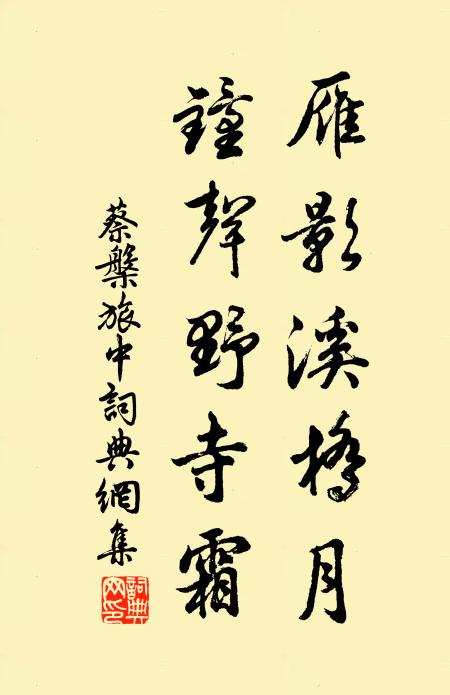 雁影溪橋月
鐘聲野寺霜
蔡槃旅中詞典網集
詞典網印